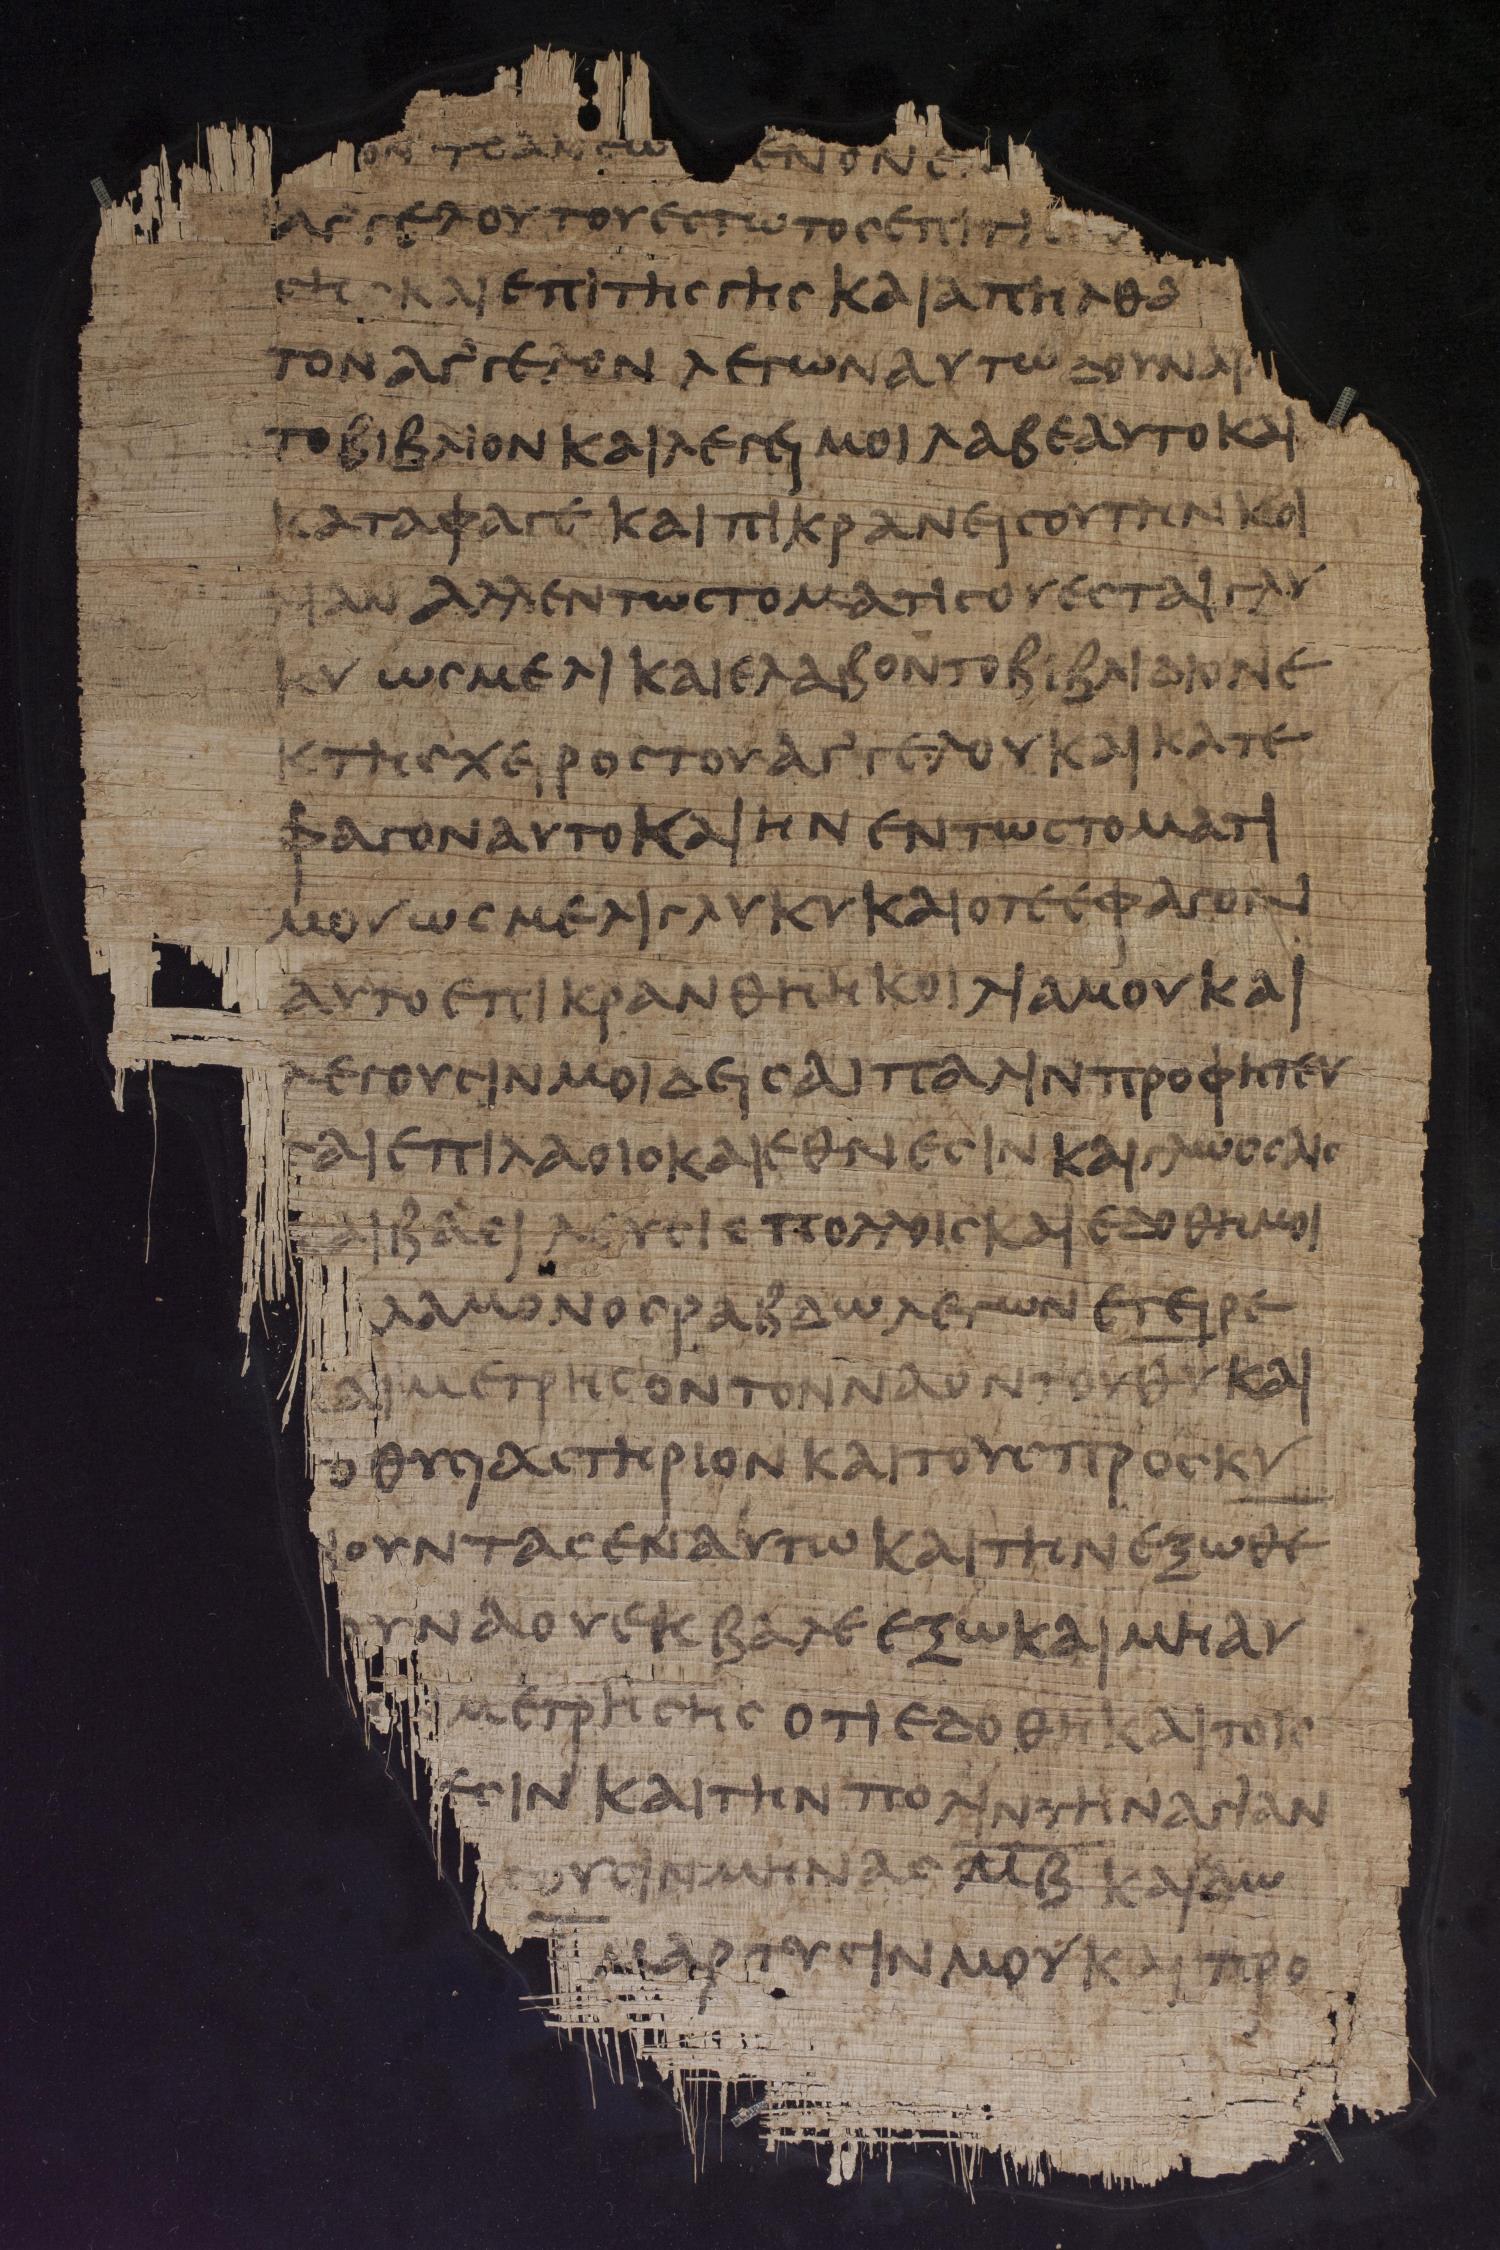 ον
αγ'γελου του εστωτος επι τη
σης και επι της γης και απηλθα
τον αγ'γελον λεγων αυτω δουναι
το βιβλιον και λεγει μοι λαβε αυτο και
καταφαγε και πικρανει σου την κοι
λιαν αλλ εν τω στοματι σου εσται γλυ
κυ ως μελι και ελαβον το βιβλιδιον ε
κ της χειρος του αγ'γελου και κατε
φαγον αυτο και ην εν τω στοματι
μου ως μελι γλυκυ και οτε εφαγον
αυτο επικρανθη η κοιλια μου και
λεγουσιν μοι δει σαι παλιν προφητευ
σαι επι λαοιο και εθνεσιν και γλωσσαις
και βασιλευσι πολλοις και εδοθη μοι
λαμονος ραβδω λεγων εγειρε
και μετρησον τον ναον του θυ και
το θυσιαστηριον και τους προσκυ
νουντας εν αυτω και την εξωθε
ουναου εκβαλε εξω και μη αυ
μετρησης οτι εδοθη και τοις
εσιν και την πολιν την αγιαν
τουσιν μηνας μβ και δω
μαρτυσιν μου και προ